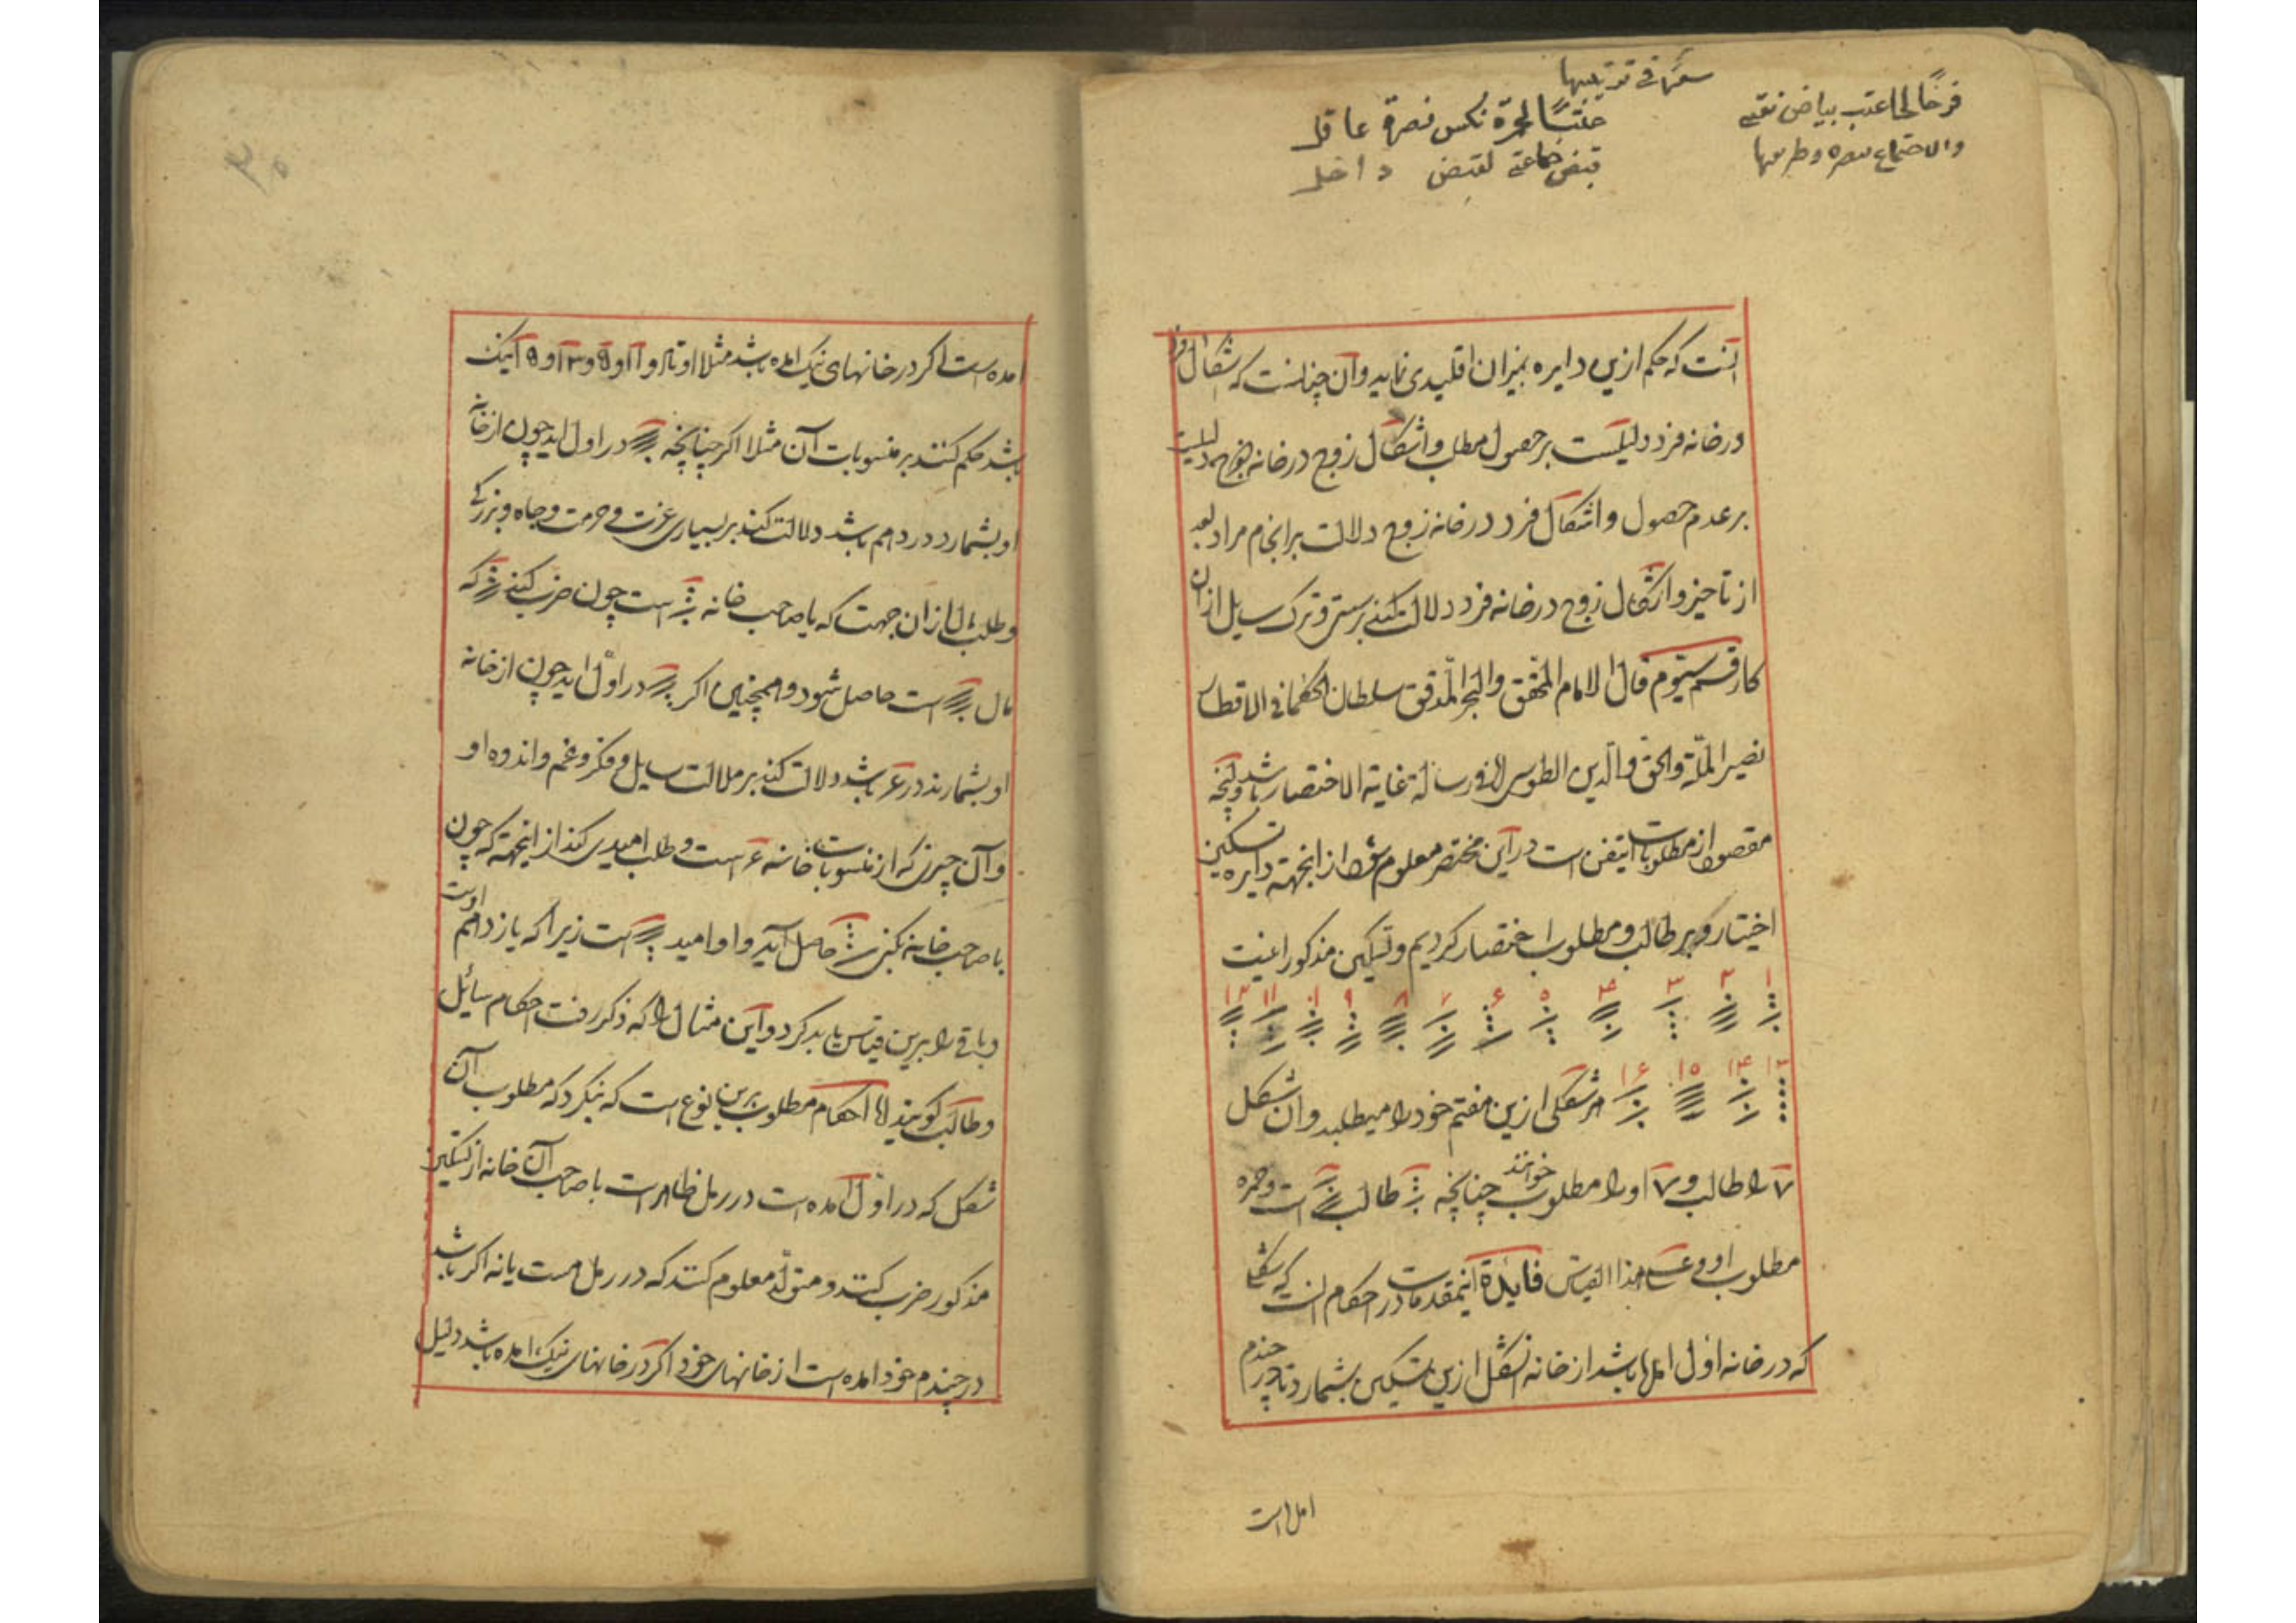 فرحًا لحا عتب بیاض نقی
والاجتماع نصره وطریقها
فی ترتیبها
حمرة نکس نصرة عاقل
قبض جماعة لقبض داخل
آنست که حکم ازین دایره بمیزان اقلیدی نماید وآن چنانست که اشکال فرد
در خانه فرد دلیلست بر حصول مطلب واشکال زوج در خانه زوج دلیلست
بر عدم حصول واشکال فرد در خانه زوج دلالت بر انجام مراد بعد
از تاخیر واشکال زوج در خانه فرد دلالت کند بر ستر وترک سایل ازان
کار قسم سیّوم قال الامام المحقق والبحر المدقق سلطان الحکما فی الاقطار
نصیر الملّة والحق والدین الطوسی فی رسالة غایة الاختصار
مقصود از مطلوبات اینفن است دراین مختصر معلوم شود ازینجهته دایره تسکین
اختیار وبر طالب ومطلوب اختصار کردیم وتسکین مذکور اینست
۱ ۲ ۳ ۴ ۵ ۶ ۷ ۸ ۹ ۱۰ ۱۱ ۱۲
۱۳ ۱۴ ۱۵ ۱۶ هر شکلی ازین هفتم خود را میطلبد وآن شکل
۷ را طالب و ۷ او را مطلوب خوانند چنانچه طالب است وحمره
مطلوب او وعلی هذا القیاس فایدة اینمقدمات در احکام آنست که شکلی
که در خانه اوّل آمده باشد از خانه آنشکل ازین تسکین بشمارد تا در چندم
امده است
امده است اگر در خانهای نیک آمده باشد مثلا اوتاد و ۱۱ و ۵ و ۳ او ۹ آنیک
باشد حکم کنند بر منسوبات آن مثلا اگر چنانچه در اول اید چون از خانه
او بشمارد در دهم باشد دلالت کند بر بسیاری عزت وحرمت وجاه وبزرگی
وطلب مال ازان جهت که با صاحب خانه است چون ضرب کنند که
مال است حاصل شود وهمچنین اگر در اوّل اید چون از خانه
او بشمارند در ۶ باشد دلالت کند بر ملالت سایل وفکر وغم واندوه او
وآن چیزی که از منسوبات خانه ۶ است وطلب امیدی کند از اینجهته که چون
با صاحب خانه حاصل آید واو امید است زیرا که یازدهم اوست
وباقی را برین قیاس باید کرد واین مثال را که ذکر رفت احکام سائل
وطالب گویند اما احکام مطلوب برین نوع است که بنگرد که مطلوب آن
شکل که در اوّل آمده است در رمل ظاهر است با صاحب آن خانه از تسکین
مذکور ضرب کنند ومتولّد معلوم کنند که در رمل هست یا نه اگر باشد
در چندم خود امده است از خانهای خود اگر در خانهای نیک امده باشد دلیل